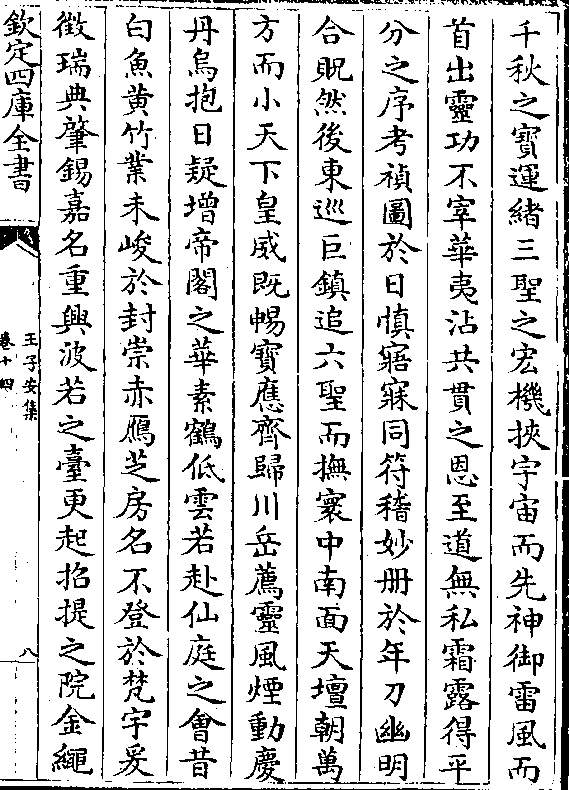 千秋之寶運緒三聖之宏機挾宇宙而先神御雷風而
首出靈功不宰華夷沾共貫之恩至道無私霜露得平
分之序考禎圖於日慎寤寐同符稽妙册於年刀幽明
合貺然後東巡巨鎮追六聖而撫寰中南面天壇朝萬
方而小天下皇威既暢寶應齊歸川岳薦靈風煙動慶
丹烏抱日疑增帝閣之華素鶴低雲若赴仙庭之會昔
白魚黄竹業未峻於封崇赤鴈芝房名不登於梵宇爰
徵瑞典肇錫嘉名重興波若之臺更起招提之院金繩
欽定四庫全書
王子安集
卷十四
八